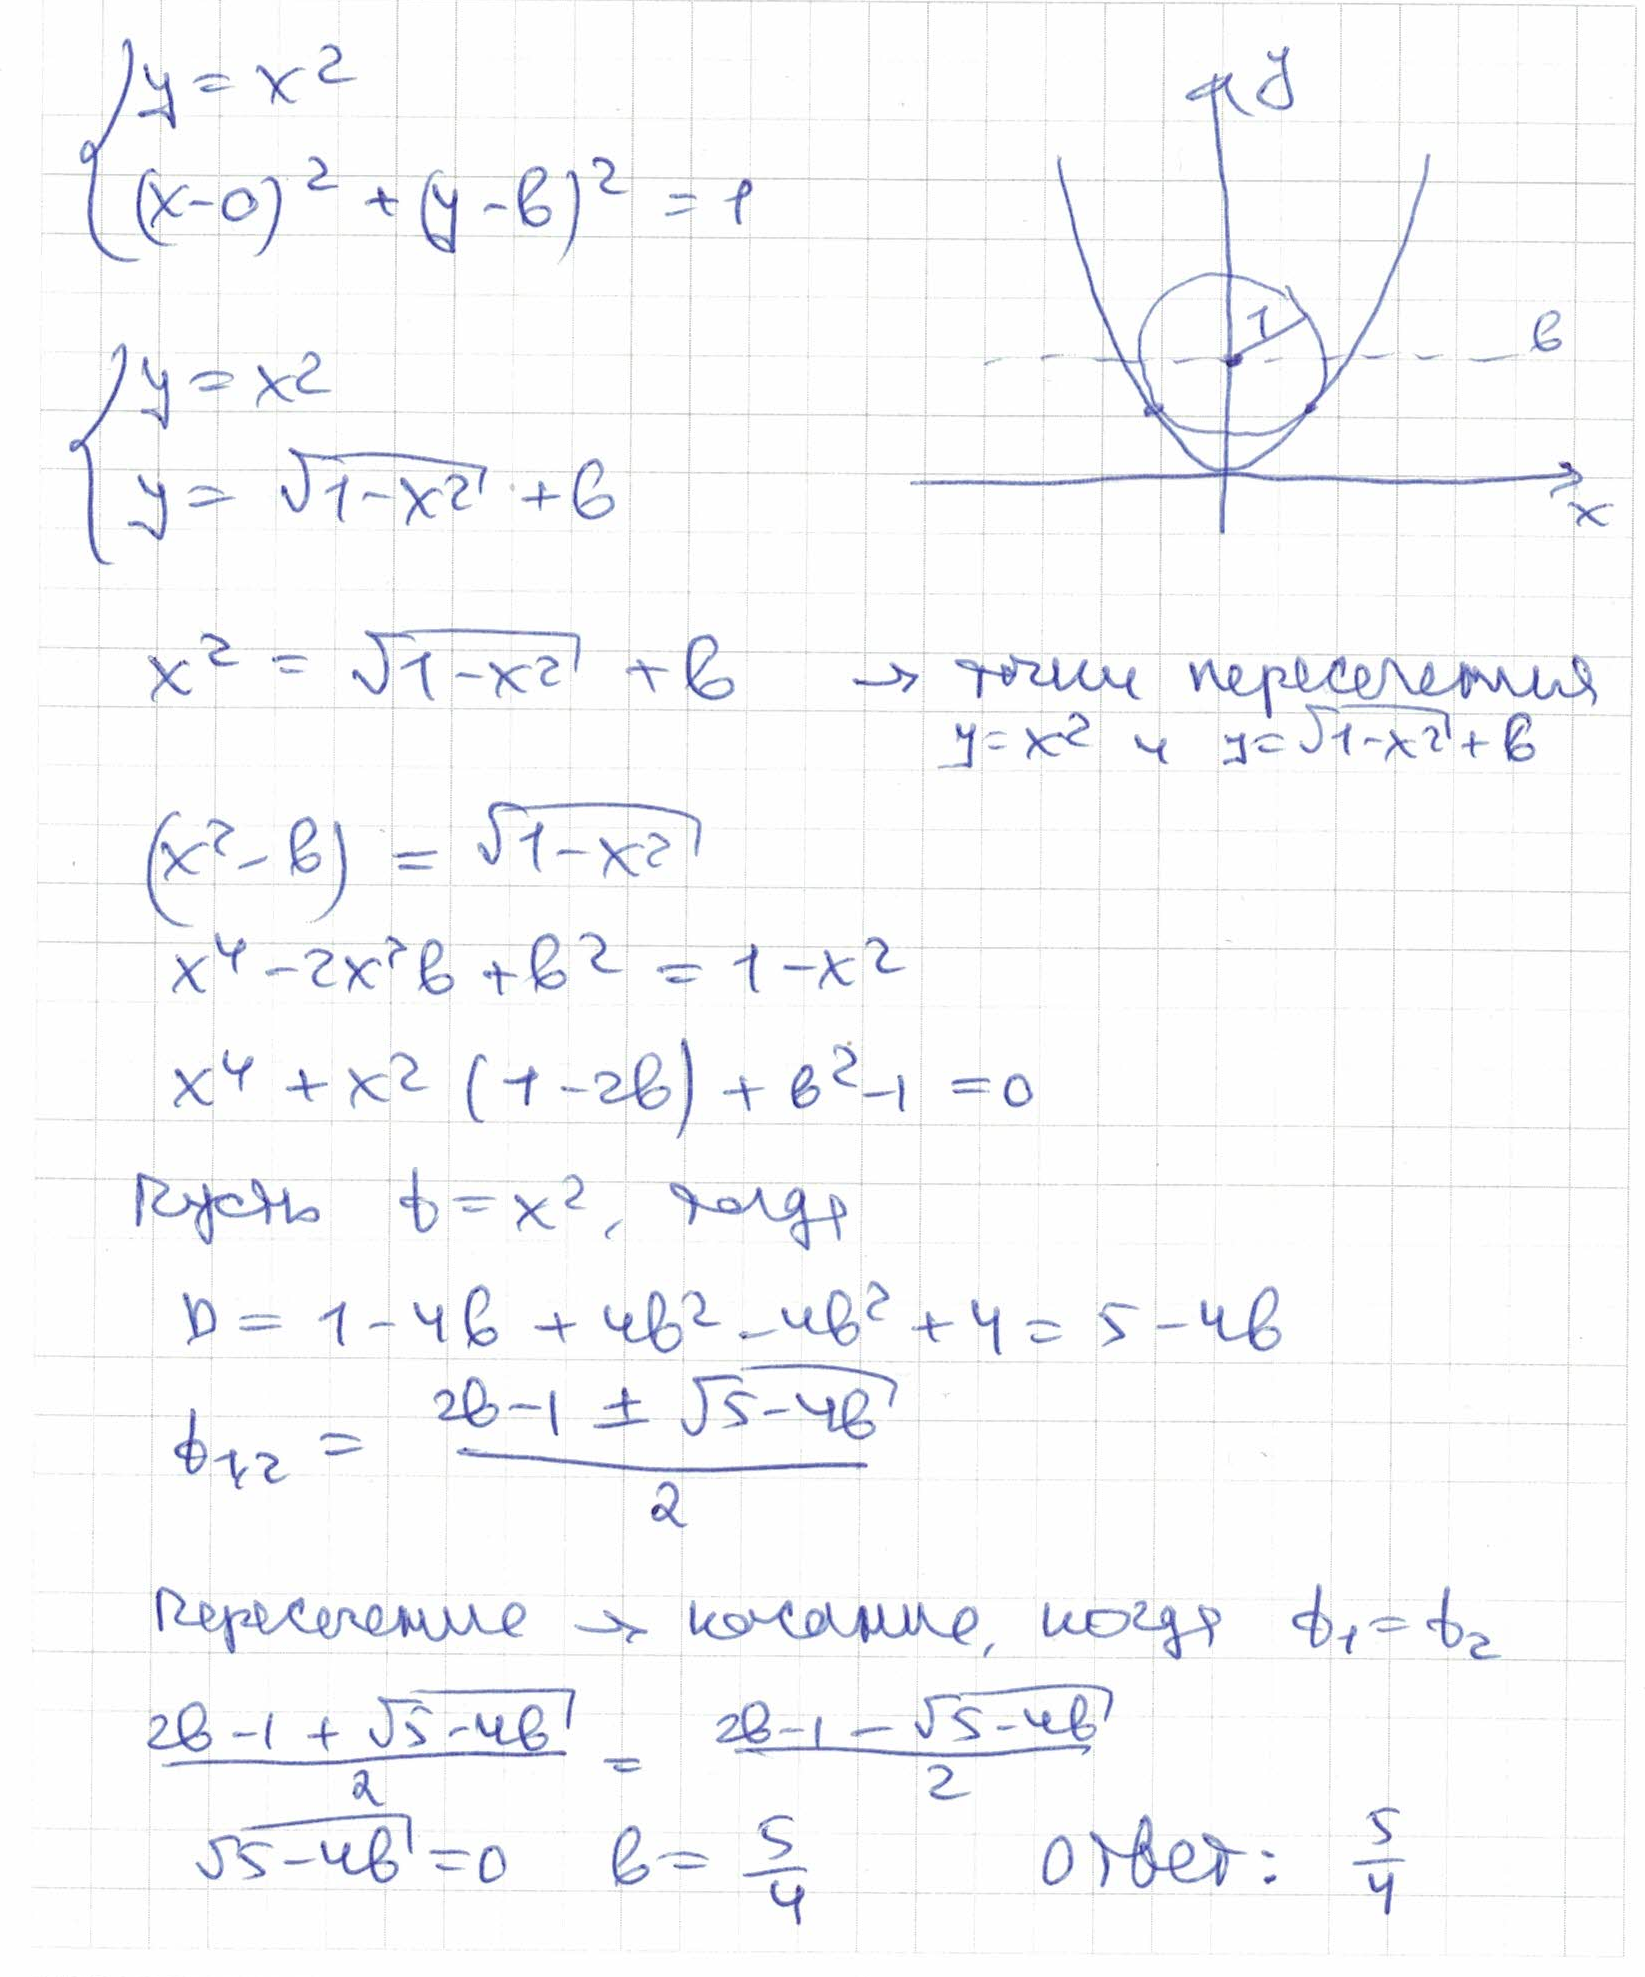 y = x²
(x-0)² + (y-b)² = 1
y = x²
y = √(1-x²) + b
x² = √(1-x²) + b → точки пересечения
y=x² и y=√(1-x²)+b
(x²-b) = √(1-x²)
x⁴ - 2x²b + b² = 1-x²
x⁴ + x² (1-2b) + b²-1 = 0
Пусть t = x², тогда
D = 1-4b + 4b² - 4b² + 4 = 5-4b
t₁,₂ = (2b-1 ± √(5-4b))/2
Пересечение → касание, когда t₁=t₂
(2b-1 + √(5-4b))/2 = (2b-1 - √(5-4b))/2
√(5-4b) = 0 b = 5/4 Ответ: 5/4
y
1
b
x